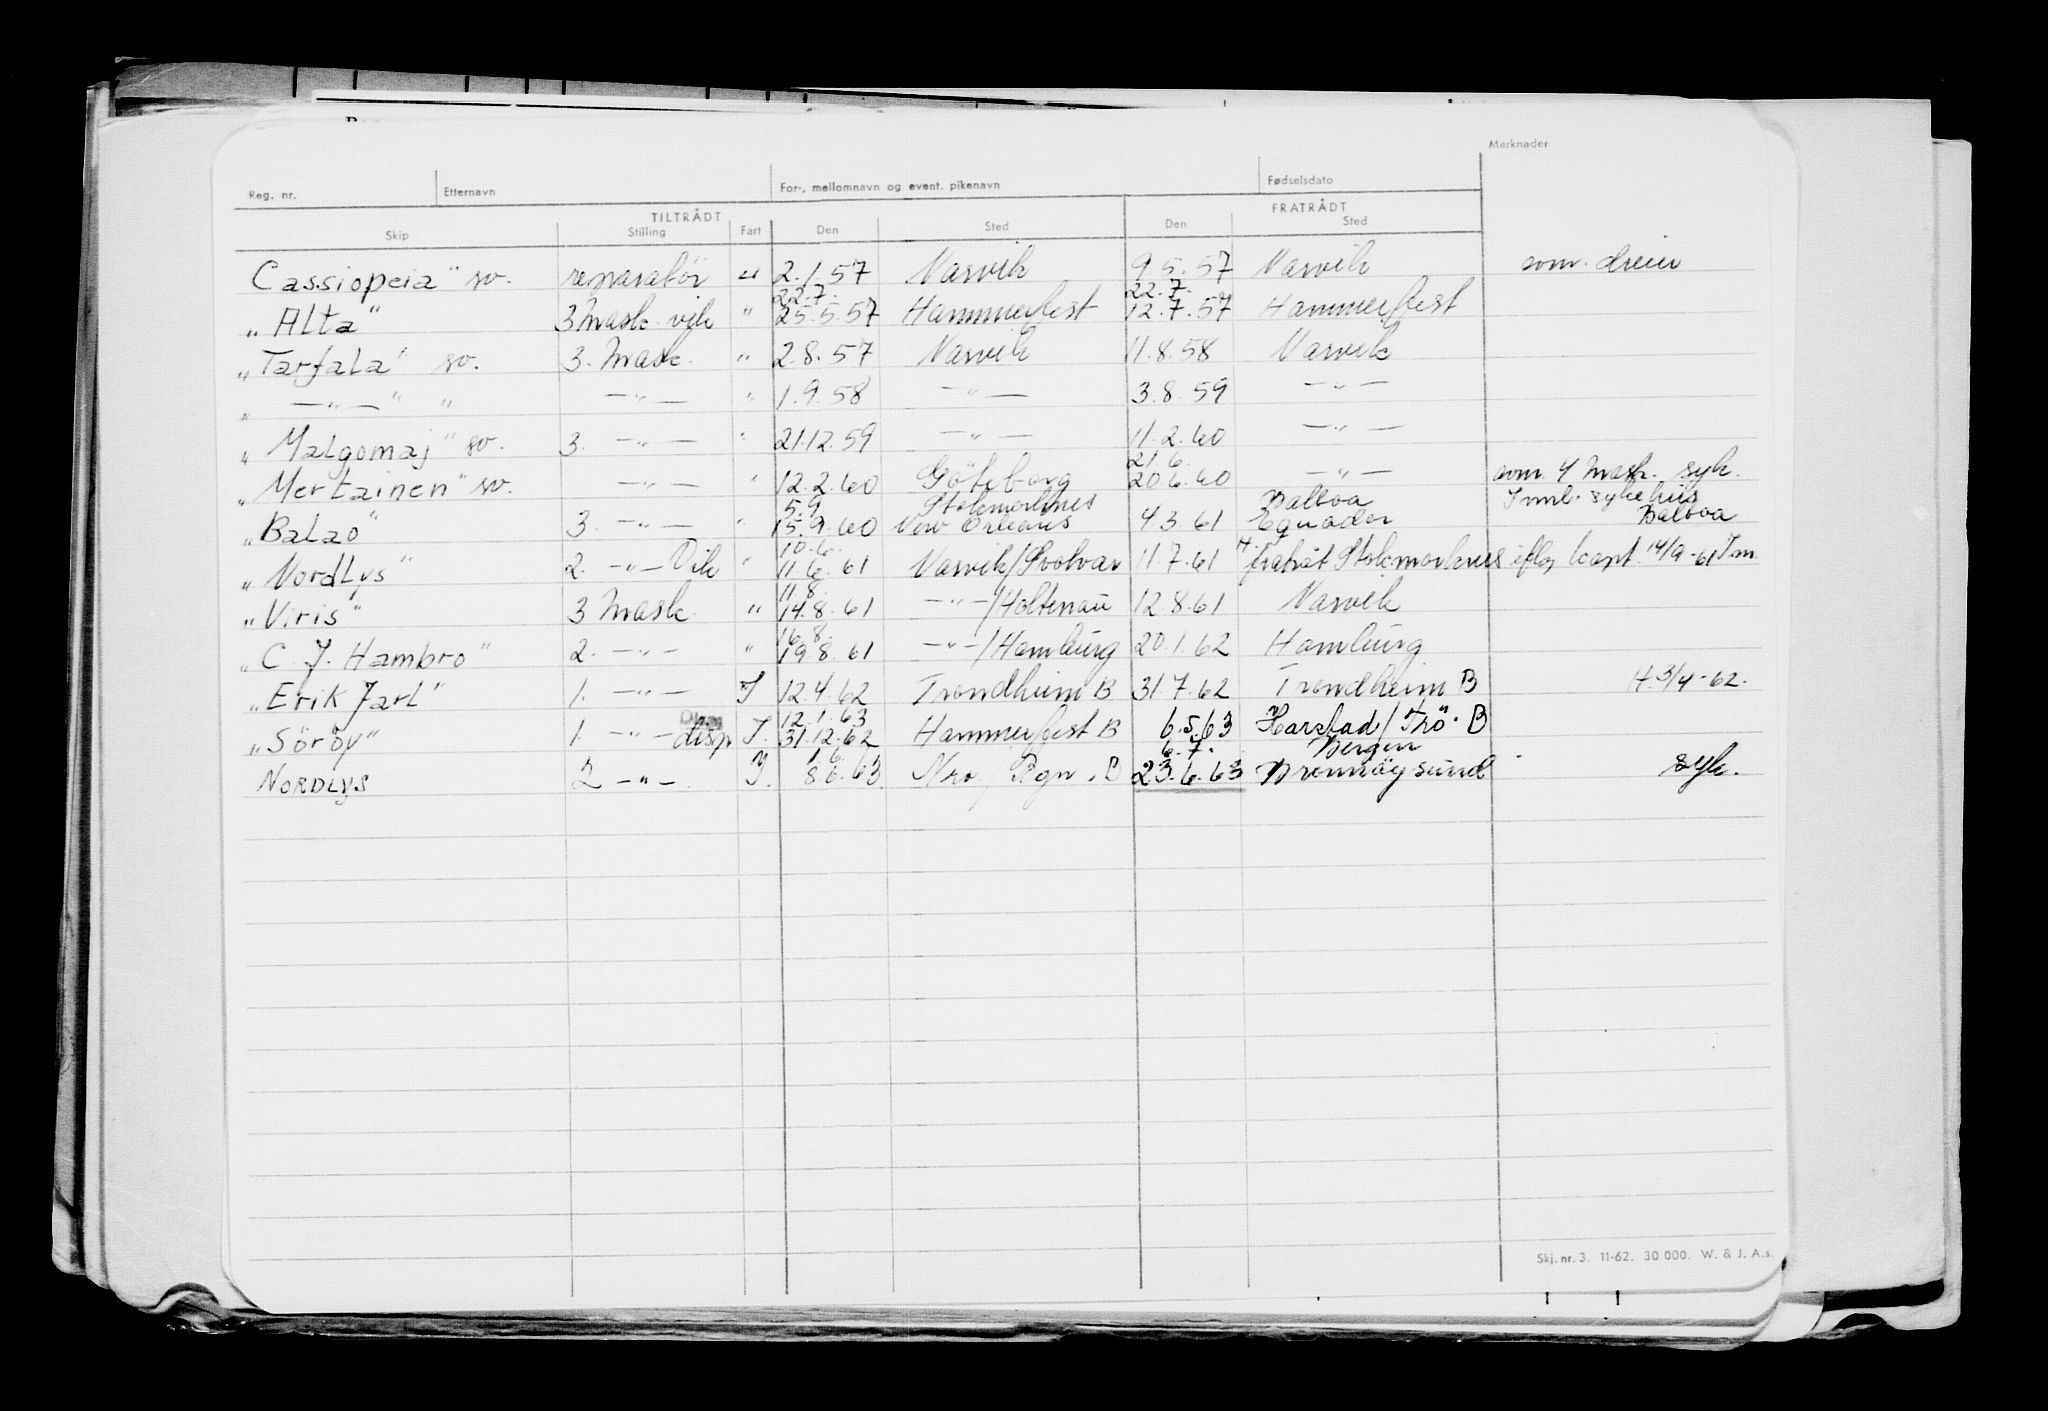 Merknader
Reg. nr. Etternavn For-, mellomnavn og event. pikenavn Fødselsdato
TILTRÅDT FRATRÅDT
Skip Stilling Fart Den Sted Den Sted
Cassiopeia" sv. reparatör " 2.1.57 Narvik 9.5.57 Narvik som. dreier
22.7. 22.7.
"Alta" 3 Mask. vik " 25.5.57 Hammerfest 12.7.57 Hammerfest
"Tarfala" sv. 3. Mask. " 2.8.57 Narvik 11.8.58 Narvik
" —"—" " —"— " 1.9.58 —"— 3.8.59 —"—
"Malgomaj" sv. 3. —"— " 21.12.59 —"— 11.2.60 —"—
21.6.
"Mertainen" sv. —"— " 12.2.60 Göteborg 20.6.60 —"— som. 4 Mask. syk.
5.9 Stokmarknes Balboa Innl. sykehus
"Balao" 3. —"— " 15.9.60 New Orleans 4.3.61 Equador Balboa
10.6.
"Nordlys" 2. —"— Vik " 11.6.61 Narvik/Svolvær 11.7.61 fratråt Stokmarknes iflg kapt. 14/9-61
11.8.
"Viris" 3 Mask. " 14.8.61 —"—/Holtenau 12.8.61 Narvik
16.8.
"C. J. Hambro" 2. —"— " 19.8.61 —"—/Hamburg 20.1.62 Hamburg
"Erik Jarl" 1. —"— I 12.4.62 Trondheim B 31.7.62 Trondheim B H. 3/4-62.
12.1.63
"Söröy" 1. —"— disp I. 31.12.62 Hammerfest B 6.5.63 Harstad/Trö. B
1.6. 6.7. Bergen
NORDLYS 2 —"— I. 8.6.63. / Bgn. B 23.6.63 Brønnøysund syk.
Skj. nr. 3. 11-62. 30 000. W. & J. A.s.